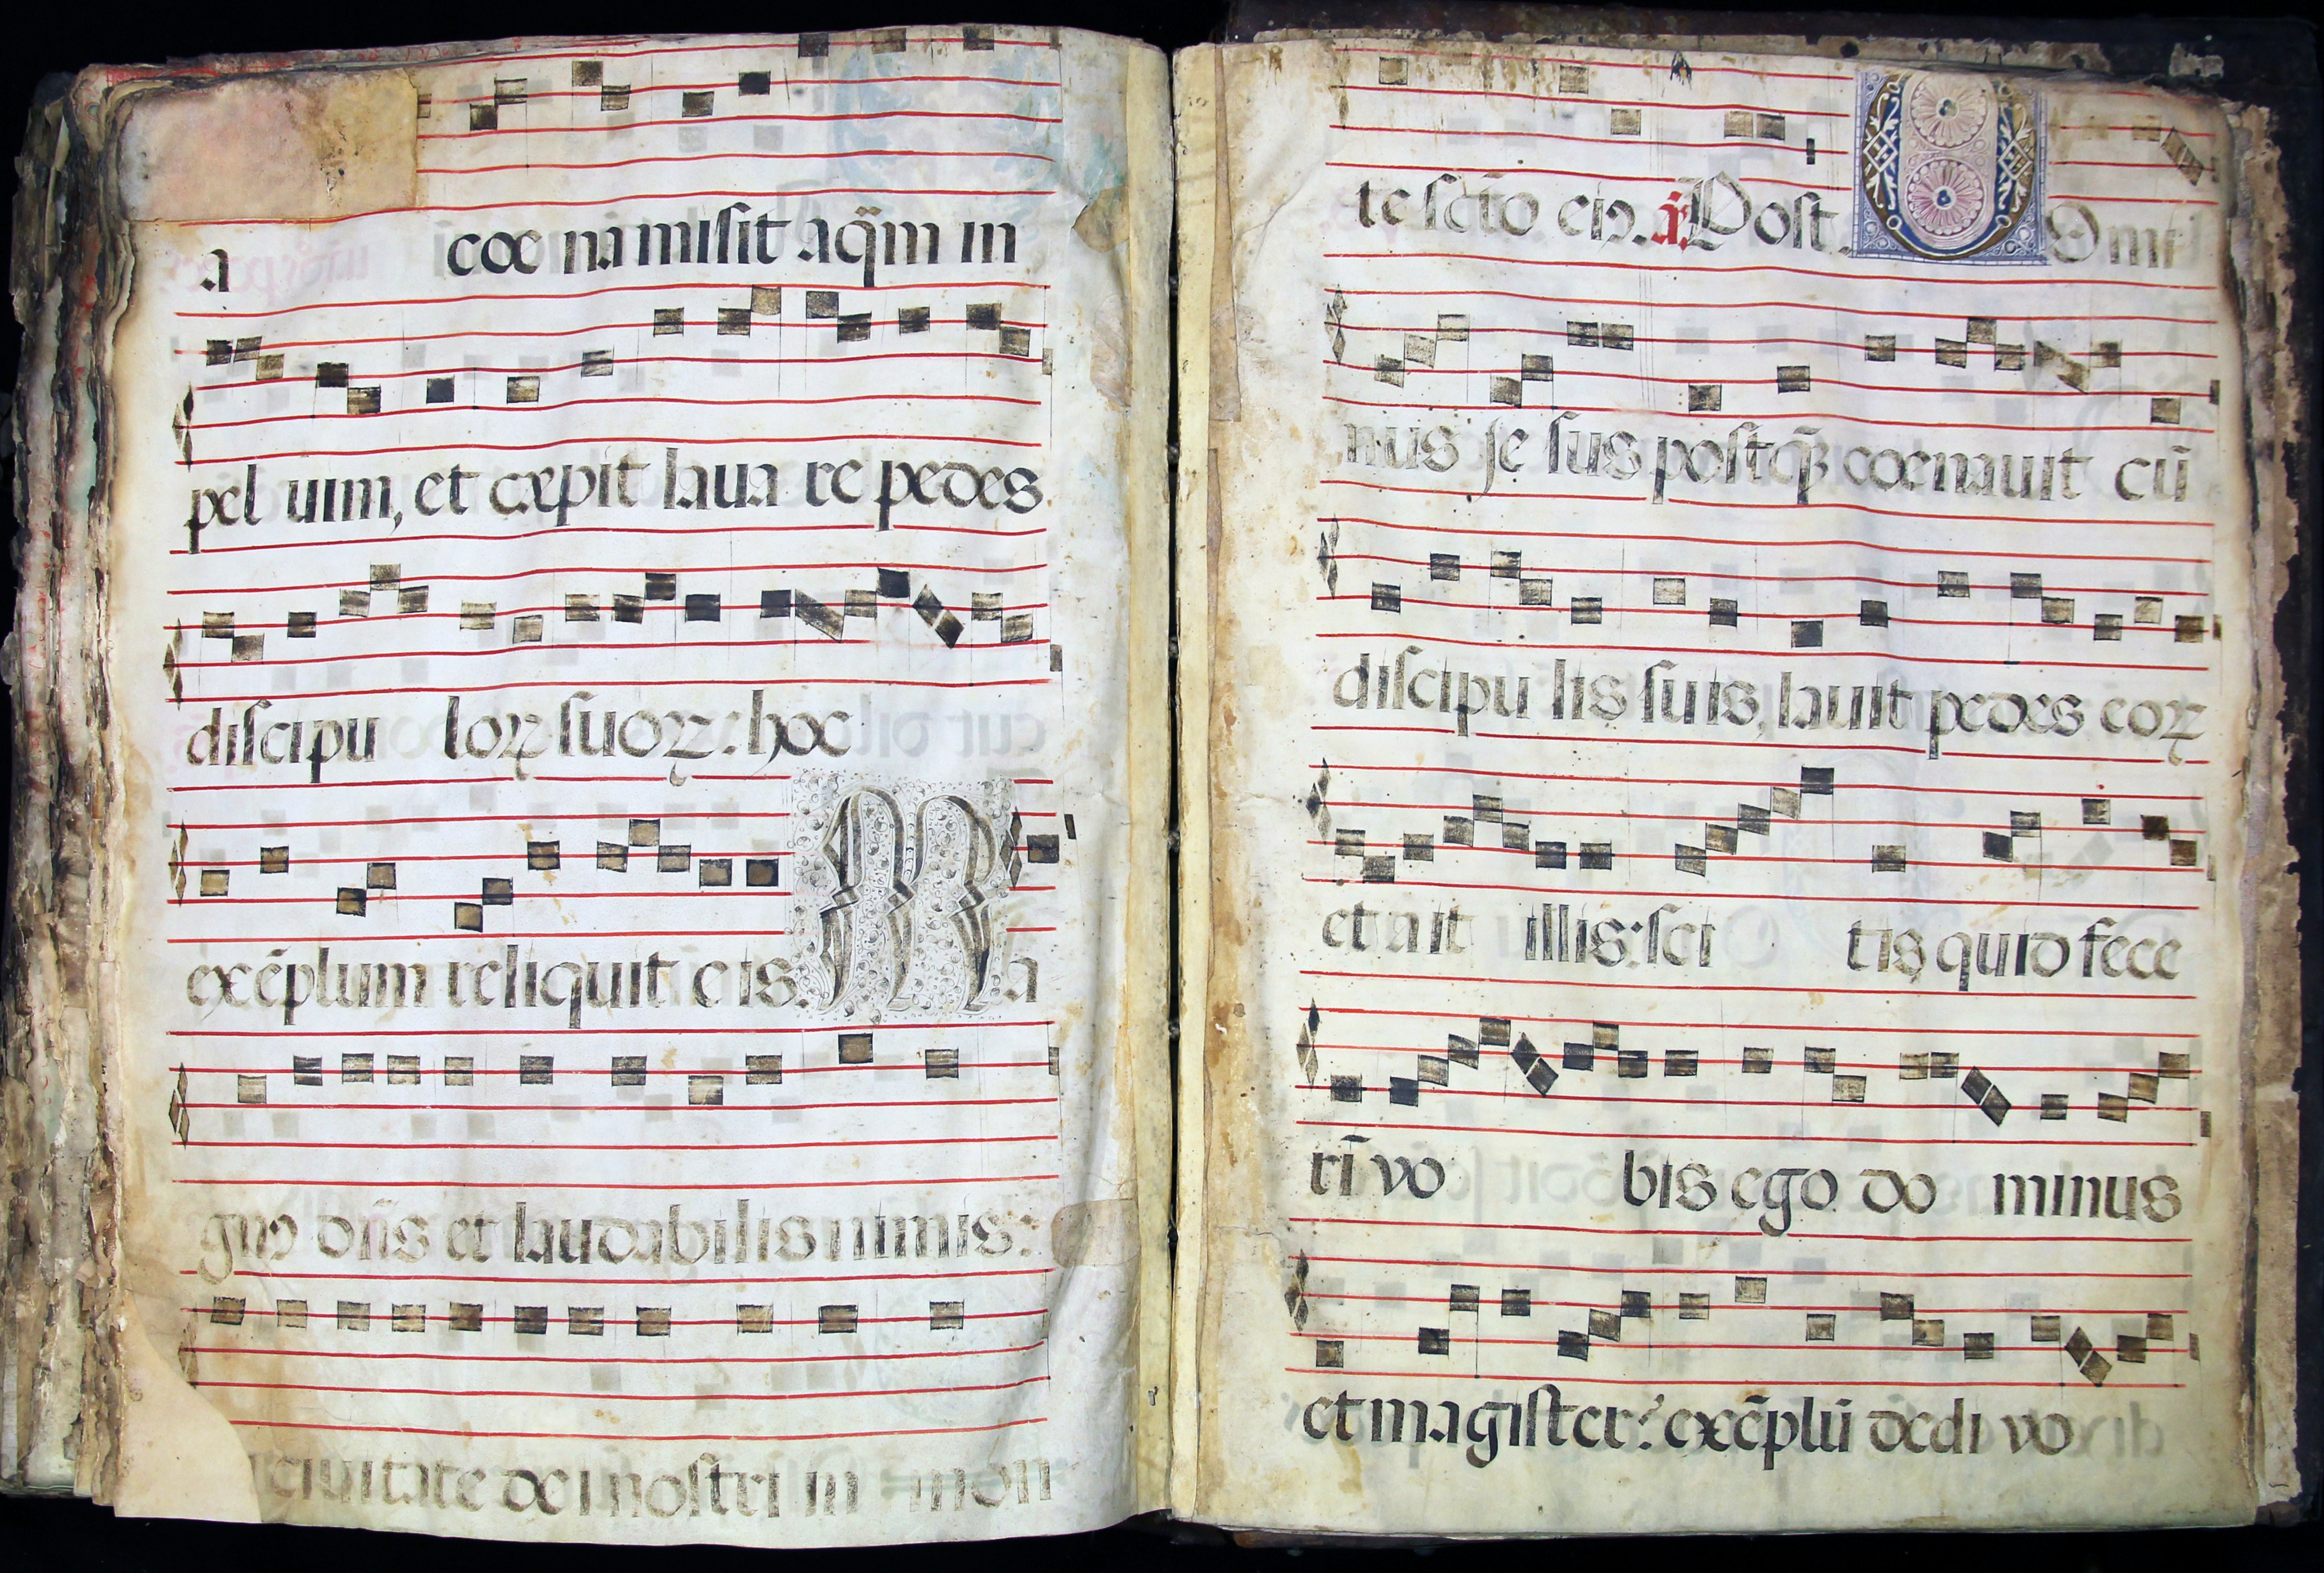 a cœ na misit aq̃m in
pel uim, et cæpit laua re pedes
discipu loꝝ suoꝝ: hoc
exẽplum reliquit e is. Ma
gnꝰ dñs et laudabilis nimis:
ciuitate dei nostri in mon
te scto eiꝰ. ã. Post. Domi
nus je sus postq̃ꝫ cœnauit cũ
discipu lis suis, lauit pedes eoꝝ
et a it illis: sci tis quid fece
rĩ vo bis ego do minus
et magister? exẽplũ dedi vo